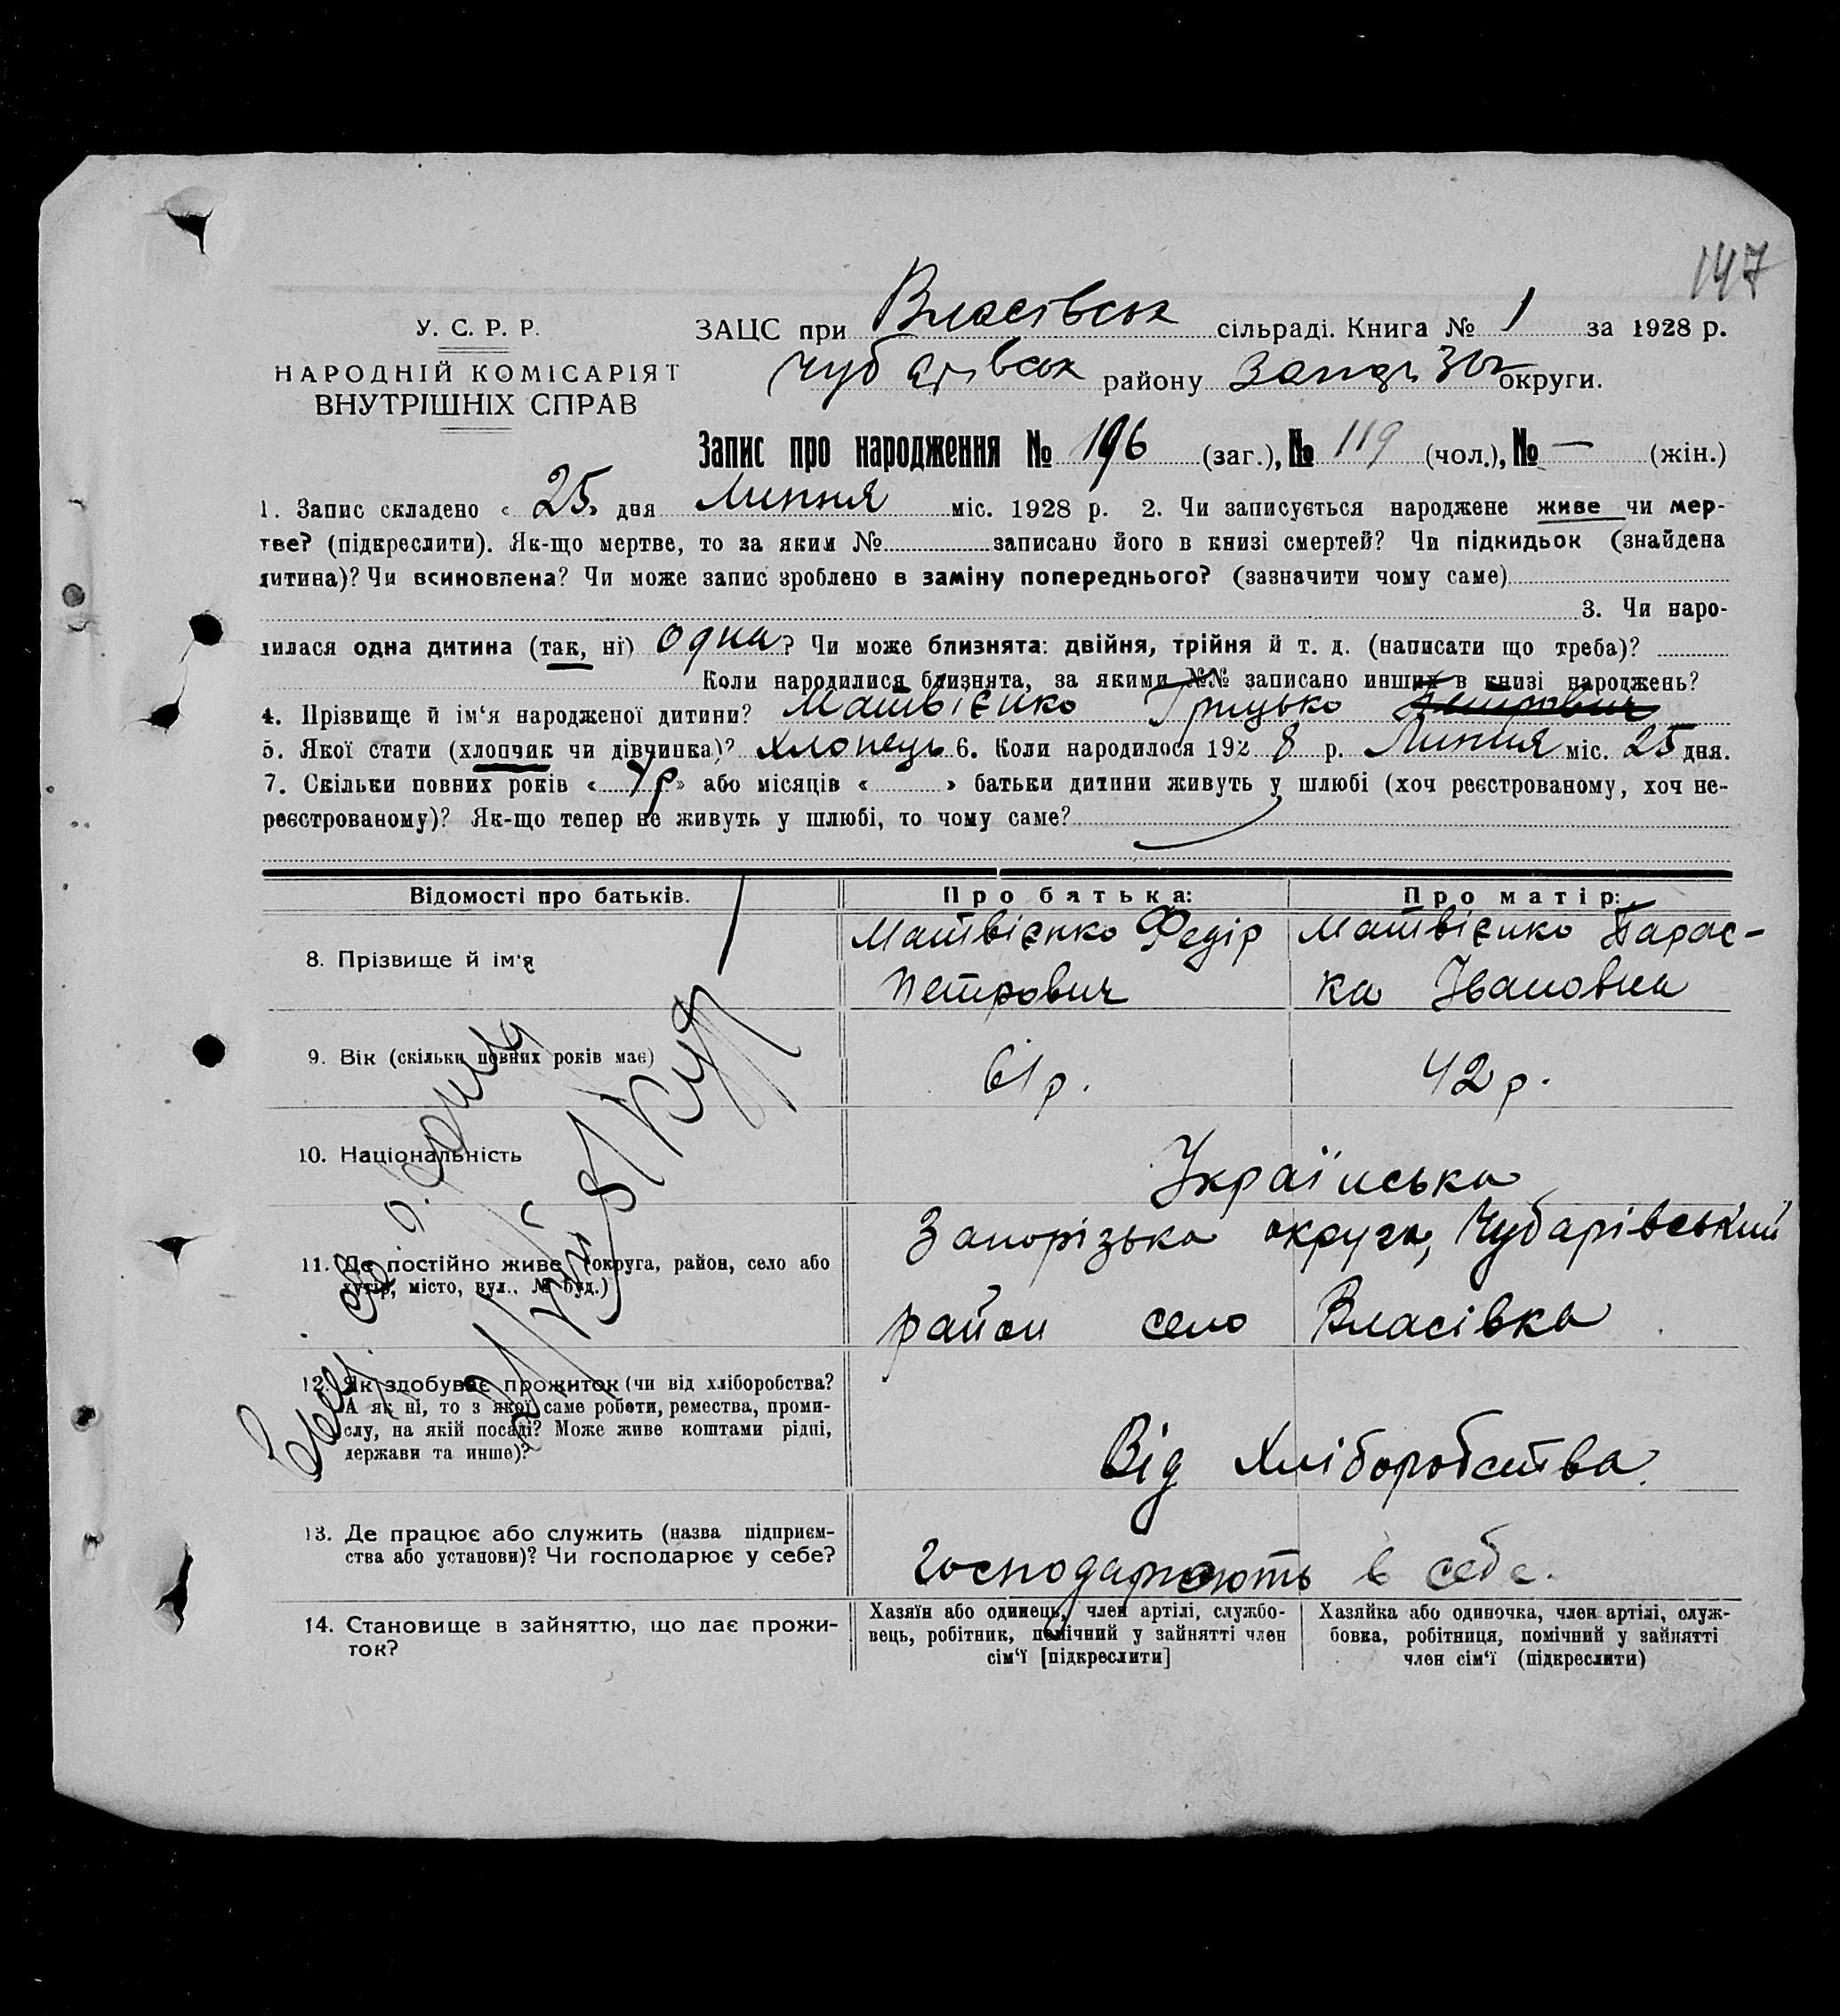 147
У. С. Р. Р.
НАРОДНІЙ КОМІСАРІЯТ
ВНУТРІШНІХ СПРАВ
ЗАЦС при Власівськ сільраді. Книга № 1 за 1928 р.
району округи.
Запис про народження № 196 (заг.), № 119 (чол.), № — (жін.)
1. Запис складено «25» дня Липня міс. 1928 р. 2. Чи записується народжене живе чи мер-
тве? (підкреслити). Як-що мертве, то за яким № записано його в книзі смертей? Чи підкидьок (знайдена
дитина)? Чи всиновлена? Чи може запис зроблено в заміну попереднього? (зазначити чому саме)
3. Чи наро-
дилася одна дитина (так, ні) Одна? Чи може близнята: двійня, трійня й т. д. (написати що треба)?
Коли народилися близнята, за якими №№ записано инших в книзі народжень?
4. Прізвище й ім‘я народженої дитини? Матвієнко Грицько Петрович
5. Якої статі (хлопчик чи дівчинка)? Хлопець 6. Коли народилося 1928 р. Липня міс. 25 дня.
7. Скільки повних років « » або місяців « » батьки дитини живуть у шлюбі (хоч реєстрованому, хоч не-
реєстрованому)? Як-що тепер не живуть у шлюбі, то чому саме?
Відомості про батьків. Про батька: Про матір:
8. Прізвище й ім‘я
Матвієнко Федір
Петрович
Матвієнко Парас-
ка Івановна
9. Вік (скільки повних років має) 61 р. 42 р.
10. Національність Українська
11. Де постійно живе (округа, район, село або
хутір, місто, вул., № буд.)
Запорізька округа, Чубарівський
район село Власівка
12. Як здобуває прожиток (чи від хліборобства?
А як ні, то з якої саме роботи, ремества, проми-
слу, на якій посаді? Може живе коштами рідні,
держави та инше)?
Від Хліборобства
13. Де працює або служить (назва підприєм-
ства або установи)? Чи господарює у себе?
Господарюють в себе.
14. Становище в зайняттю, що дає прожи-
ток?
Хазяїн або одинець, член артілі, службо-
вець, робітник, помічний у зайнятті член
сім‘ї [підкреслити]
Хазяйка або одиночка, член артілі, служ-
бовка, робітниця, помічний у зайнятті
член сім‘ї (підкреслити)